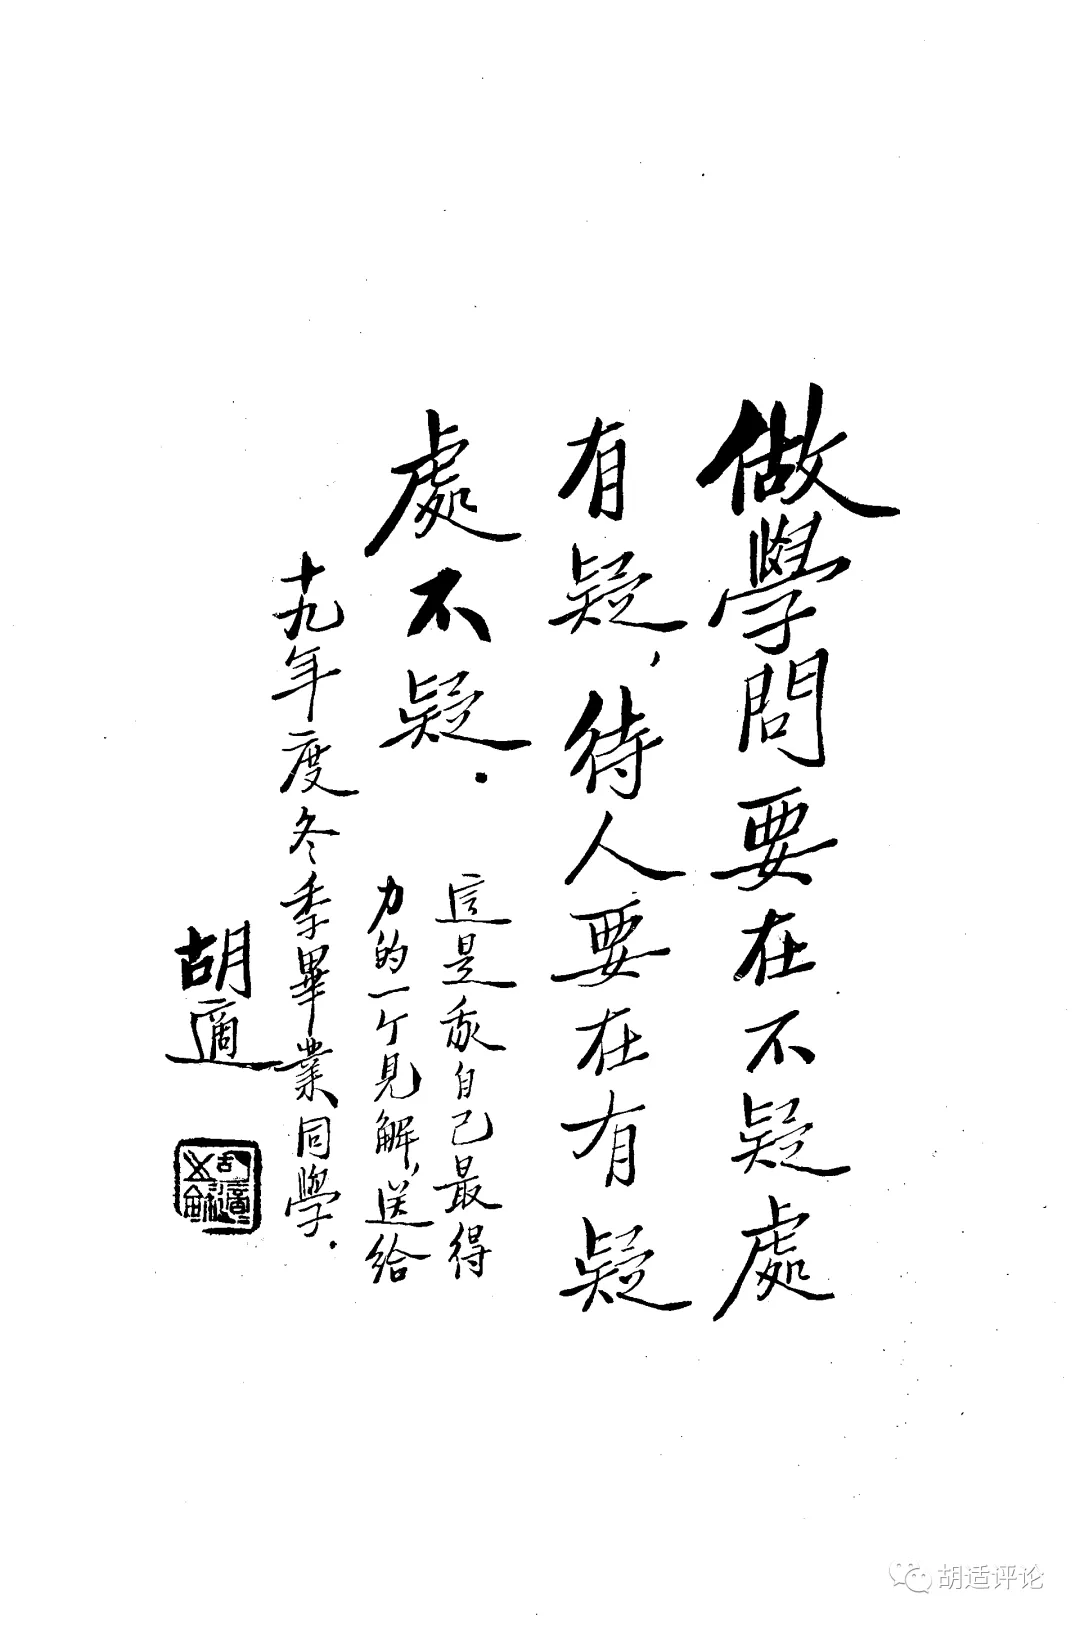 做學問要在不疑處
有疑，待人要在有疑
處不疑．
這是我自己最得
力的一个見解，送給
十九年度冬季畢業同學．
胡適
胡适评论